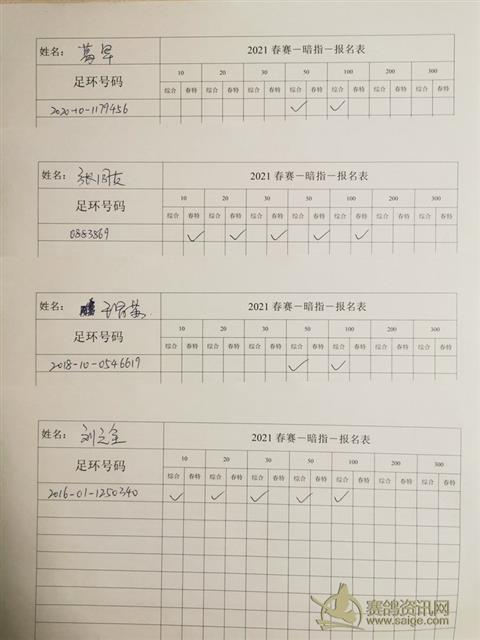 姓名： 葛早 2021 春赛－暗指－报名表
足环号码 10 20 30 50 100 200 300
综合 春特 综合 春特 综合 春特 综合 春特 综合 春特 综合 春特 综合 春特
2020-10-1179456 ✓ ✓
姓名： 2021 春赛－暗指－报名表
足环号码 10 20 30 50 100 200 300
综合 春特 综合 春特 综合 春特 综合 春特 综合 春特 综合 春特 综合 春特
0883869 ✓ ✓ ✓ ✓ ✓
姓名： 2021 春赛－暗指－报名表
足环号码 10 20 30 50 100 200 300
综合 春特 综合 春特 综合 春特 综合 春特 综合 春特 综合 春特 综合 春特
2018-10-0546619 ✓ ✓
姓名： 2021 春赛－暗指－报名表
足环号码 10 20 30 50 100 200 300
综合 春特 综合 春特 综合 春特 综合 春特 综合 春特 综合 春特 综合 春特
2016-01-1250340 ✓ ✓ ✓ ✓ ✓
赛鸽资讯网
www.saige.com